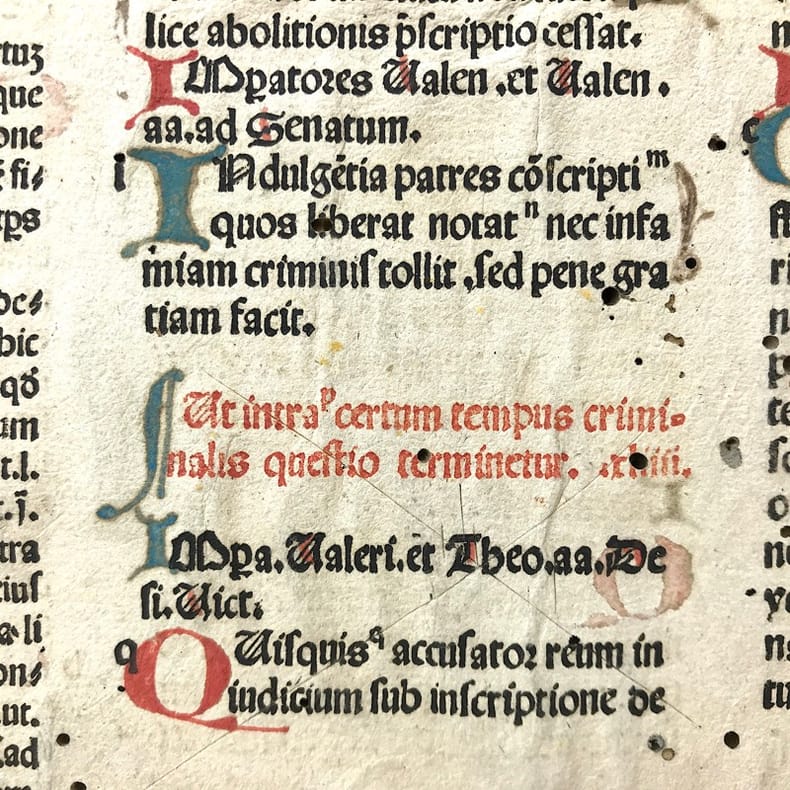 lice abolitionis p̄scriptio ceſſat.
IMꝑatores Ualen .et Ualen .
aa.ad Senatum.
i INdulgētia patres cōſcripti m
quos liberat notat n nec infa
miam criminiſ tollit ,ſed pene gra
tiam facit.
Ut intra p certum tempus crimi⸗
nalis queſtio terminetur. .xliiii.
IMꝑa.Ualeri.et Theo.aa.De
ſi.Uict.
q QUiſquis q accuſatoꝛ reum in
iudicium ſub inſcriptione de
rtuꝫ
que
one
pꝛs
bic
qđ
um
t.l.
tra
ciuſ
a li
onſ
unt.
ad
c